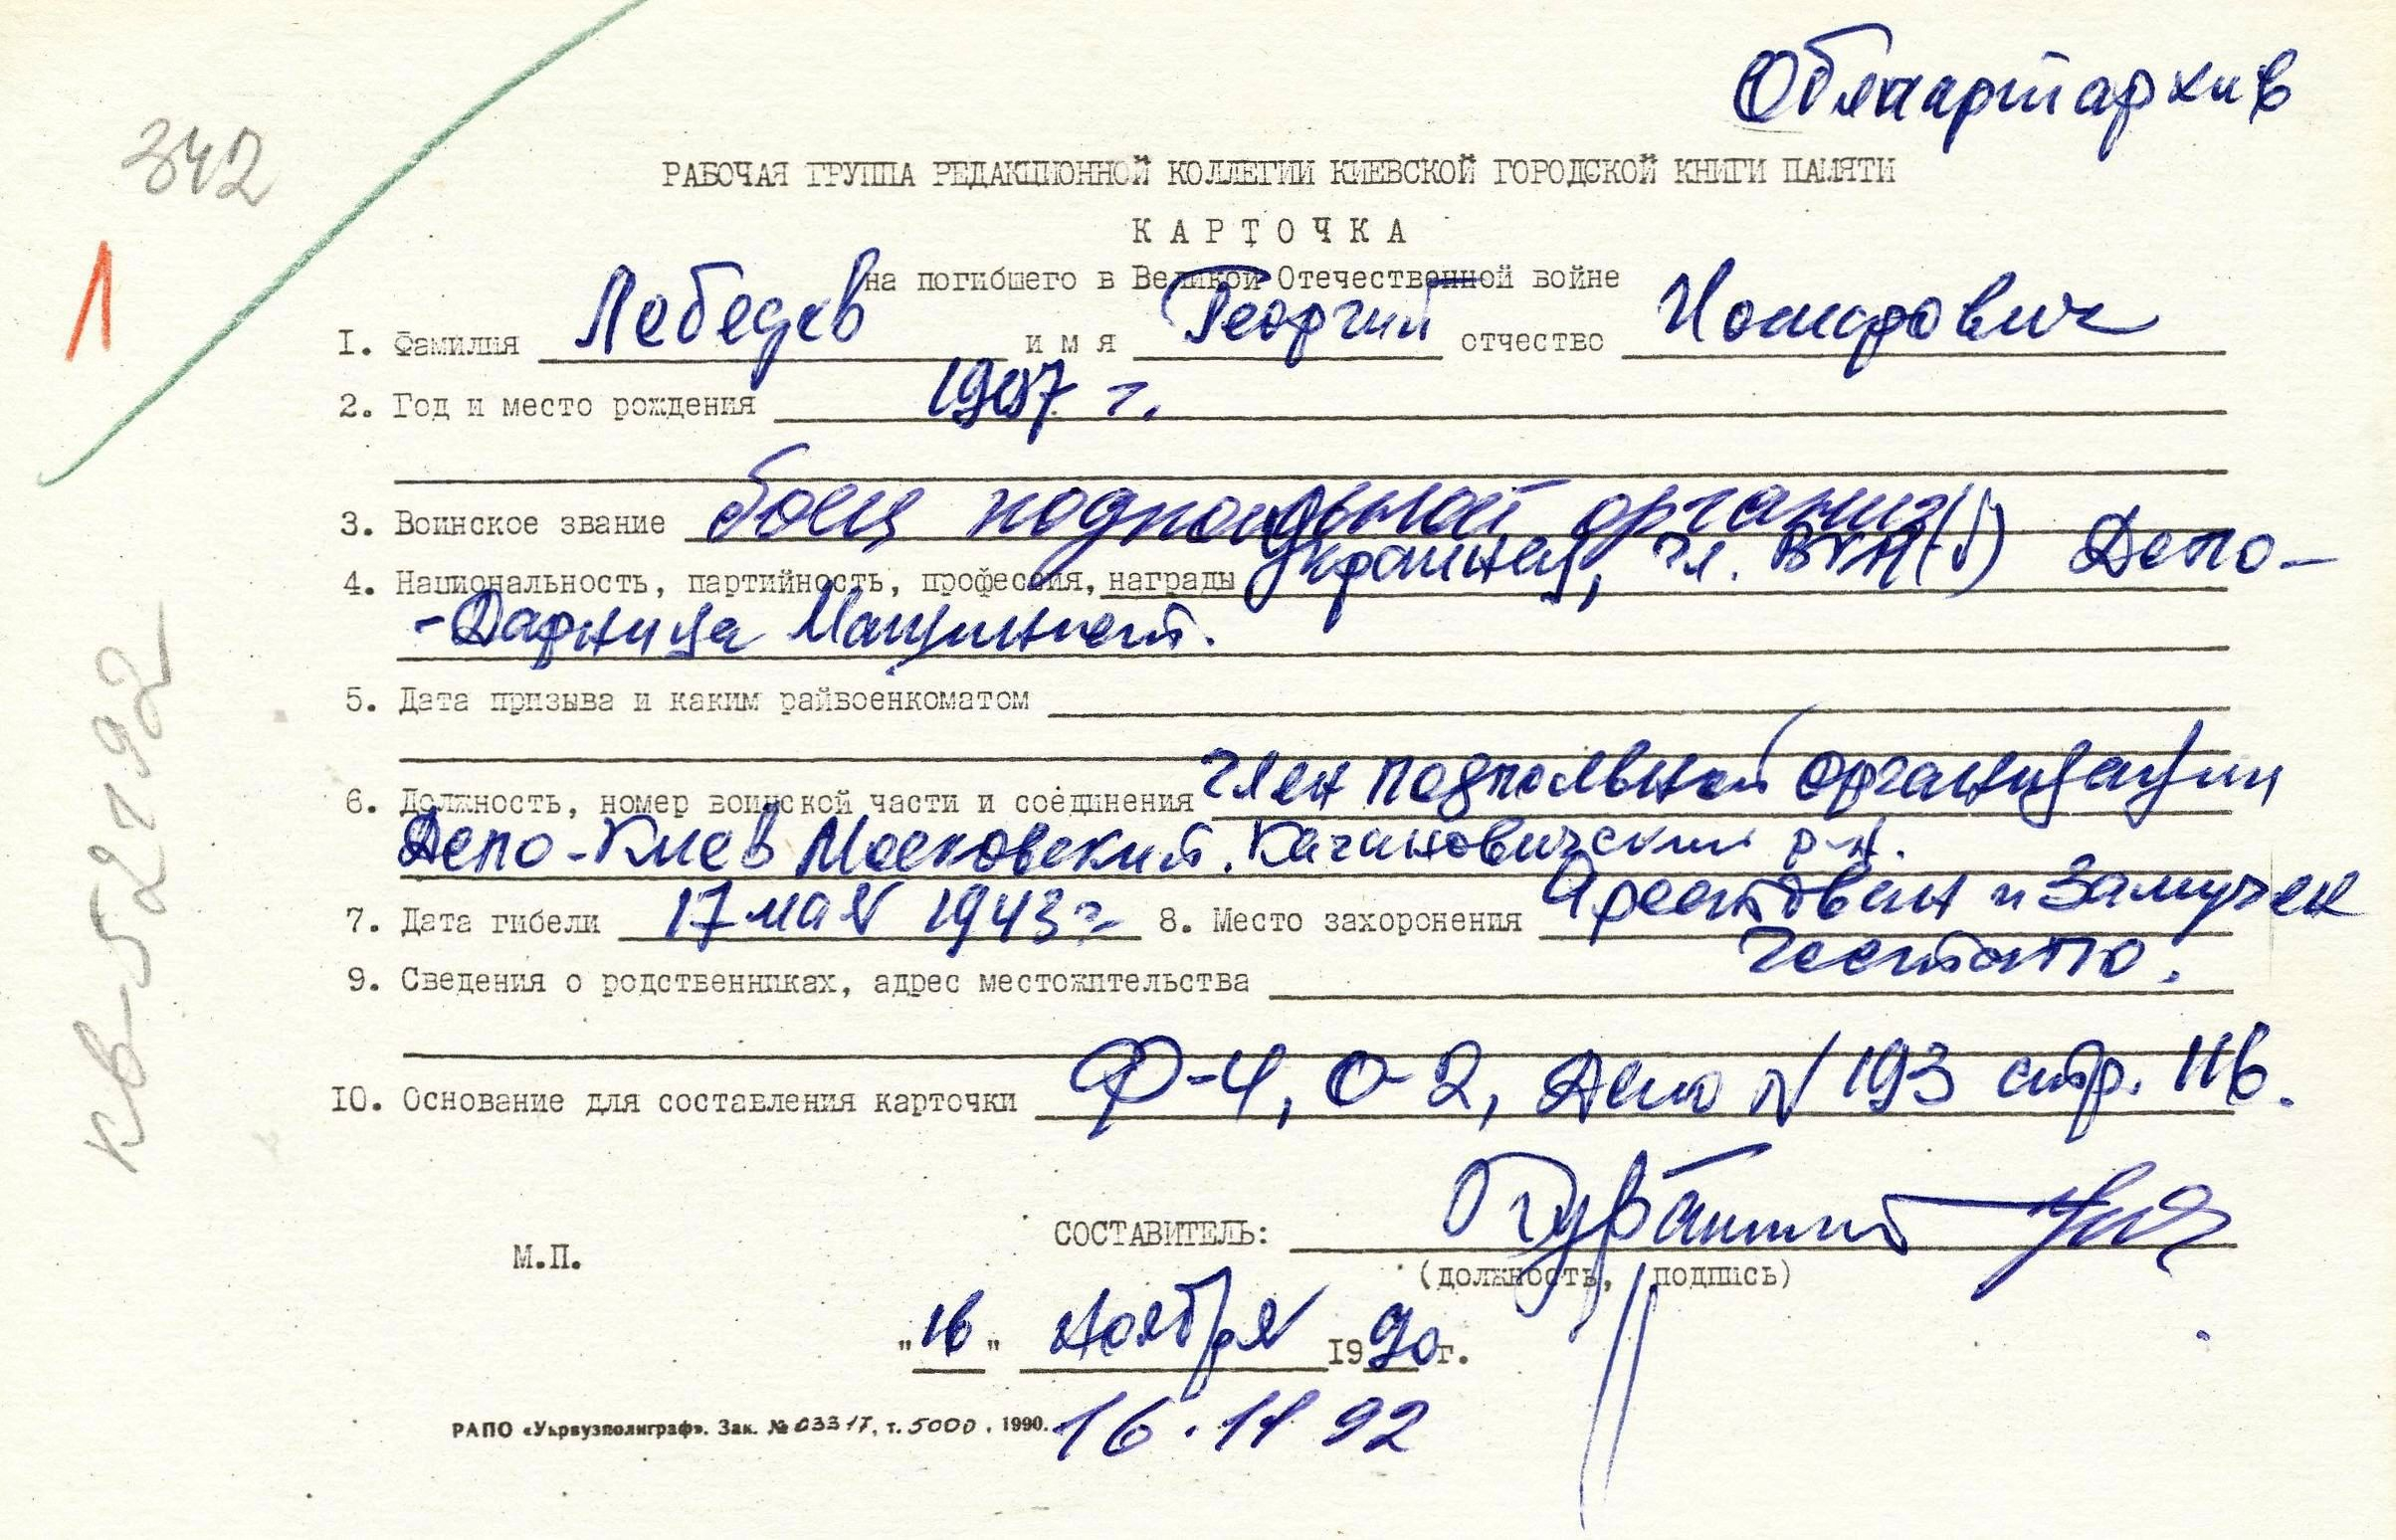 Облпартархив
342
РАБОЧАЯ ГРУППА РЕДАКЦИОННОЙ КОЛЛЕГИИ КИЕВСКОЙ ГОРОДСКОЙ КНИГИ ПАМЯТИ
КАРТОЧКА
на погибшего в Великой Отечественной войне
1
I. Фамилия Лебедев имя Георгий отчество
2. Год и место рождения 1907 г.
3. Воинское звание боец подпольной организ
4. Национальность, партийность, профессия, награды Украинец, чл. ВКП(б) Депо-
-Дарница Машинист.
5. Дата призыва и каким райвоенкоматом
6. Должность, номер воинской части и соединения член подпольной организации
Депо-Киев Московский. Кагановический р-н.
7. Дата гибели 17 мая 1943 г 8. Место захоронения Арестован и замучен
гестапо.
9. Сведения о родственниках, адрес местожительства
10. Основание для составления карточки Ф-4, О-2, Дело № 193 стр. 116.
КВ-52792
СОСТАВИТЕЛЬ:
М.П.
(должность, подпись)
"16" ноября 1990 г.
РАПО «Укрвузполиграф». Зак. № 03317, т. 5000. 1990.
16.11 92